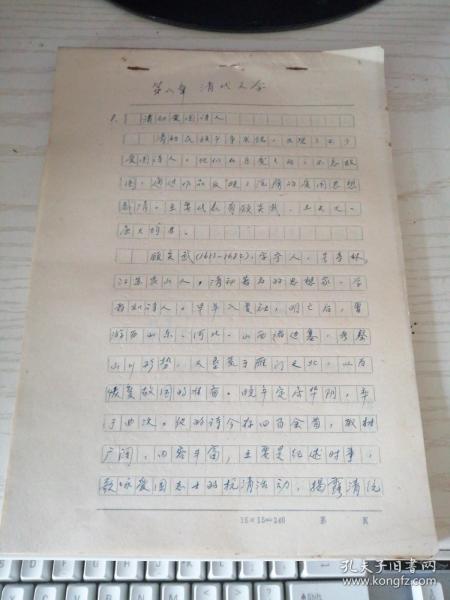 第八章 清代文学
1. 清初爱国诗人
清初民族斗争尖锐,出现了不少
爱国诗人。他们的身受之痛,不忘故
国,通过作品反映了沉厚的爱国思想
感情。主要代表有顾炎武、王夫之、
屈大均等。
顾炎武(1613-1682),字宁人,号亭林,
江苏昆山人。清初著名的思想家、学
者和诗人。早年入复社,明亡后,曾
游历山东、河北、山西诸边塞,考察
山川形势,又垦荒于雁门之北,以后
恢复故国的准备。晚年定居华阴,卒
于曲沃。他的诗今存四百余首,取材
广阔,内容丰富,主要是纪述时事,
歌咏爱国志士的抗清活动,揭露清统
15×15=240 第 页
孔夫子旧书网
www.kongfz.com